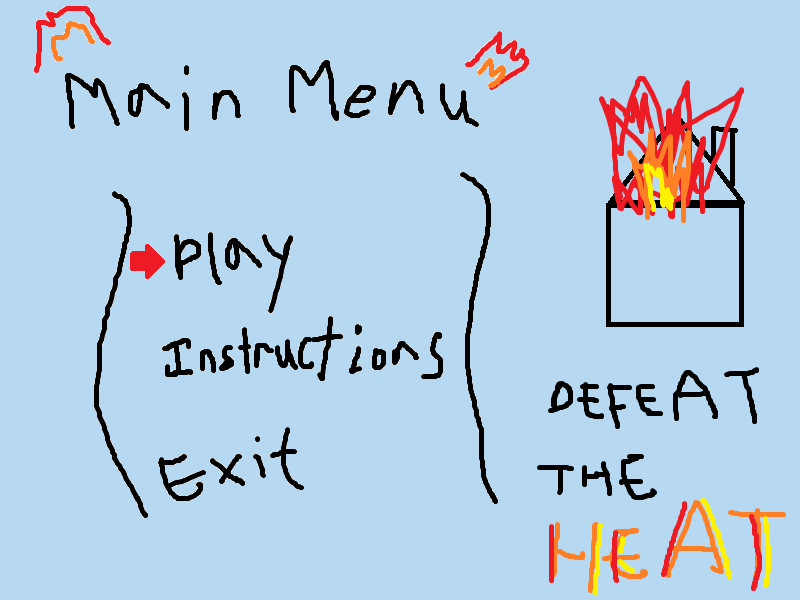 Main Menu
Play
Instructions
Exit
DEFEAT
THE
HEAT